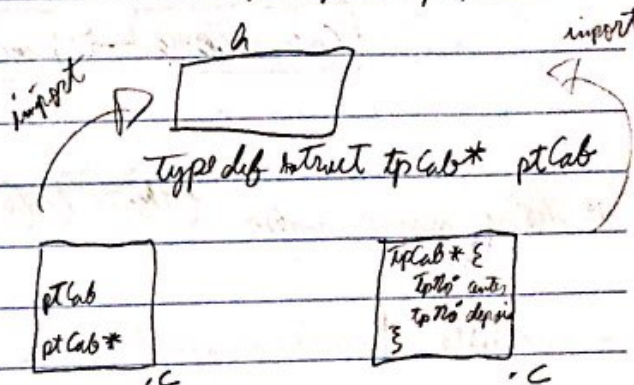 .h
import
import
typedef struct tpCab* ptCab
ptCab
ptCab*
tpCab* {
tpNó antes
tpNó depois
}
.c
.c